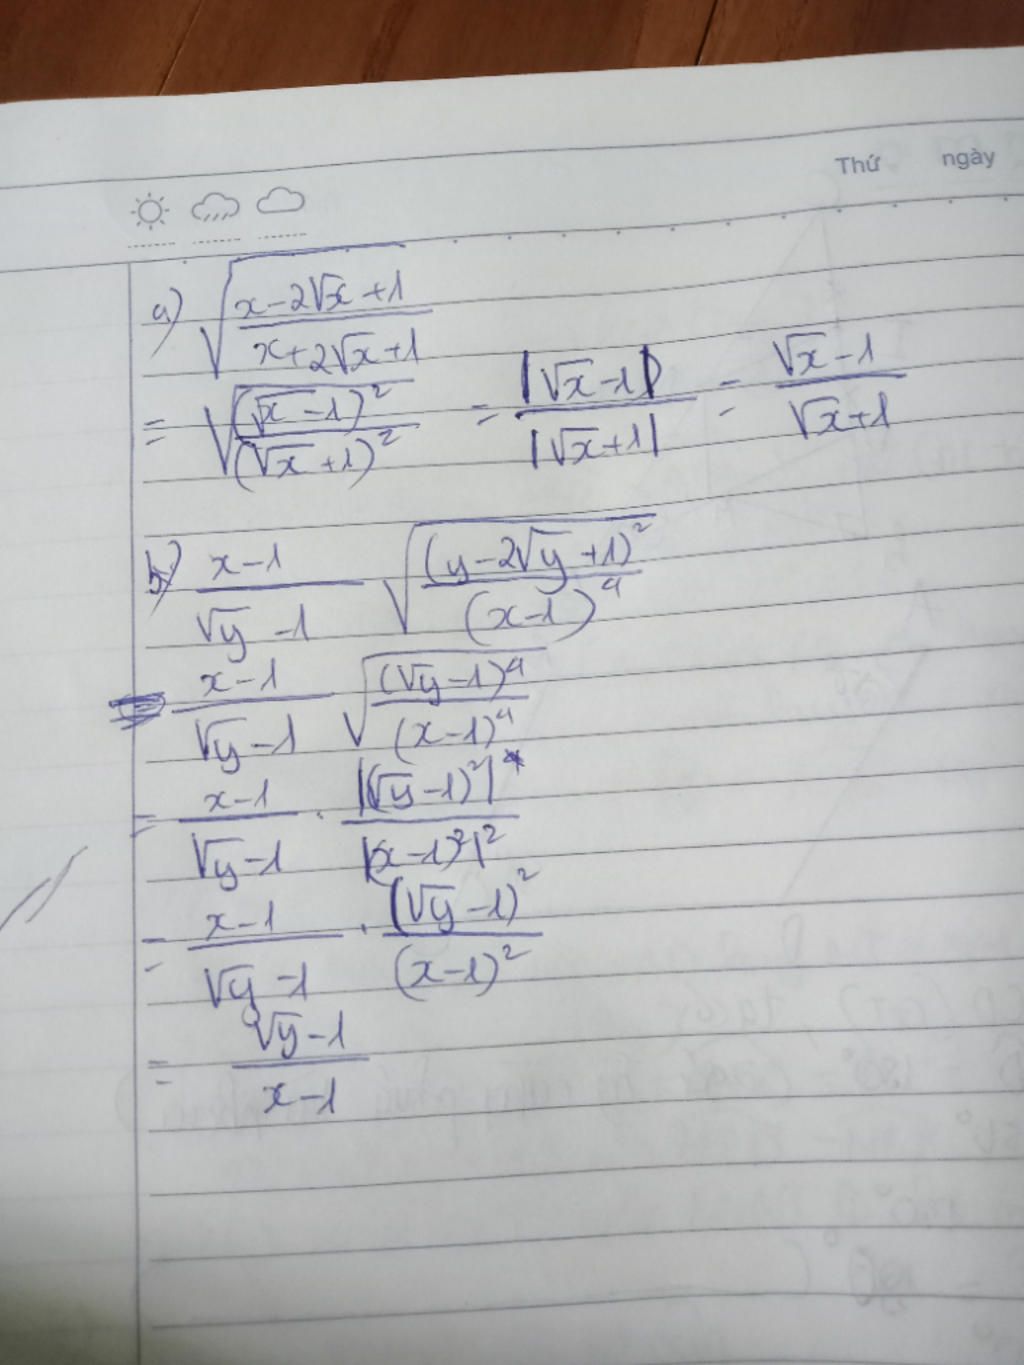 Thứ ngày
a) √((x-2√x+1)/(x+2√x+1))
= √((√x-1)²/(√x+1)²) = |√x-1|/|√x+1| = (√x-1)/(√x+1)
b) (x-1)/(√y-1) √((y-2√y+1)²/(x-1)⁴)
(x-1)/(√y-1) √((√y-1)⁴/(x-1)⁴)
= (x-1)/(√y-1) . |(√y-1)²|/|(x-1)²|²
= (x-1)/(√y-1) . (√y-1)²/(x-1)²
= (√y-1)/(x-1)